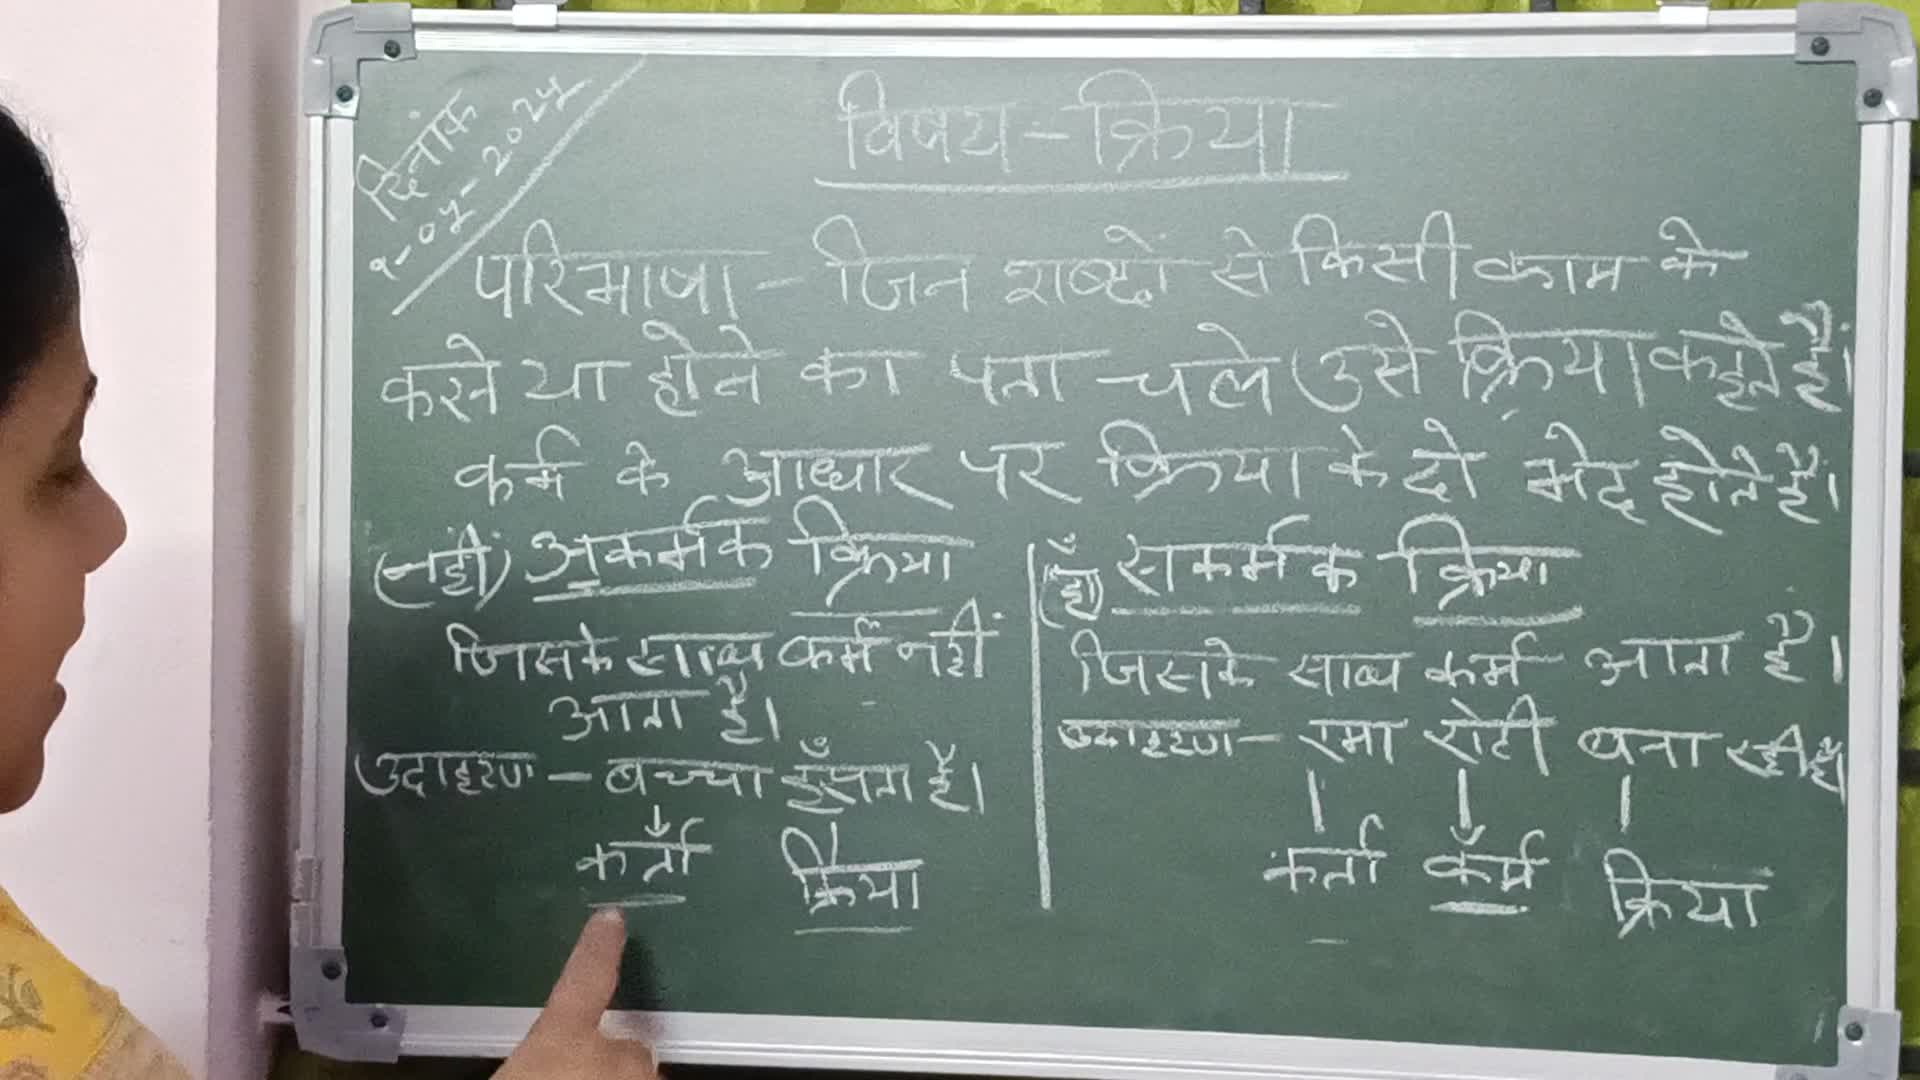 दिनांक
१-०५-2024
विषय - क्रिया
परिभाषा - जिन शब्दों से किसी काम के
करने या होने का पता चले उसे क्रिया कहते हैं।
कर्म के आधार पर क्रिया के दो भेद होते हैं।
(नहीं) अकर्मक क्रिया
जिसके साथ कर्म नहीं
आता है।
उदाहरण - बच्चा हँसता है।
कर्ता क्रिया
(हाँ) सकर्मक क्रिया
जिसके साथ कर्म आता है।
उदाहरण - रमा रोटी बना रही है।
कर्ता कर्म क्रिया